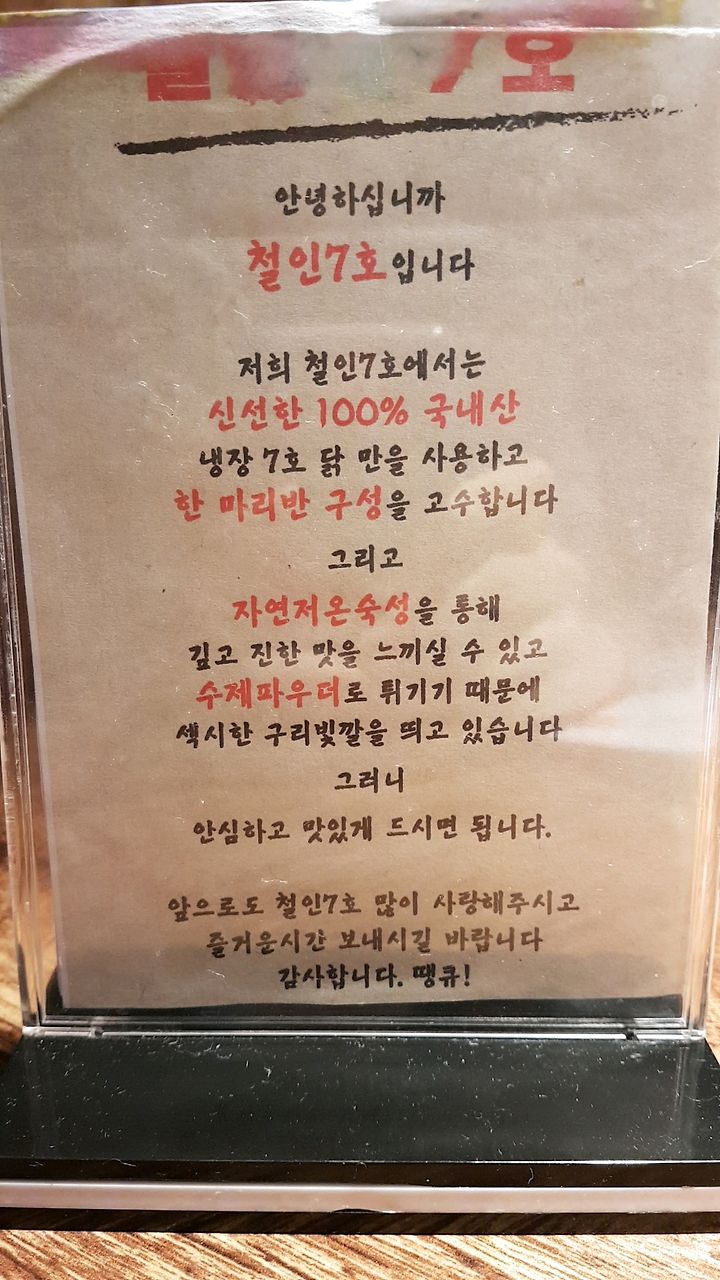 7호
안녕하십니까
철인7호입니다
저희 철인7호에서는
신선한 100% 국내산
냉장 7호 닭 만을 사용하고
한 마리반 구성을 고수합니다
그리고
자연저온숙성을 통해
깊고 진한 맛을 느끼실 수 있고
수제파우더로 튀기기 때문에
섹시한 구리빛깔을 띄고 있습니다
그러니
안심하고 맛있게 드시면 됩니다.
앞으로도 철인7호 많이 사랑해주시고
즐거운시간 보내시길 바랍니다
감사합니다. 땡큐!